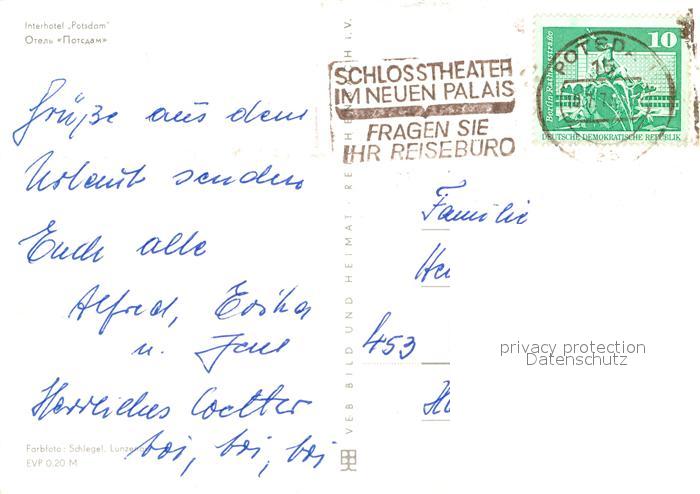 Interhotel „Potsdam"
Отель «Потсдам»
Grüße aus dem
Urlaub senden
Euch alle
Alfred, Erika
u. Jens
Herrliches Wetter
boi, boi, boi
Farbfoto: Schlegel, Lunzenau
EVP 0.20 M
VEB BILD UND HEIMAT · REICHENBACH I. V.
SCHLOSSTHEATER
IM NEUEN PALAIS
FRAGEN SIE
IHR REISEBÜRO
POTSDAM
15
10
Berlin-Rathausstraße
DEUTSCHE DEMOKRATISCHE REPUBLIK
Familie
453
privacy protection
Datenschutz